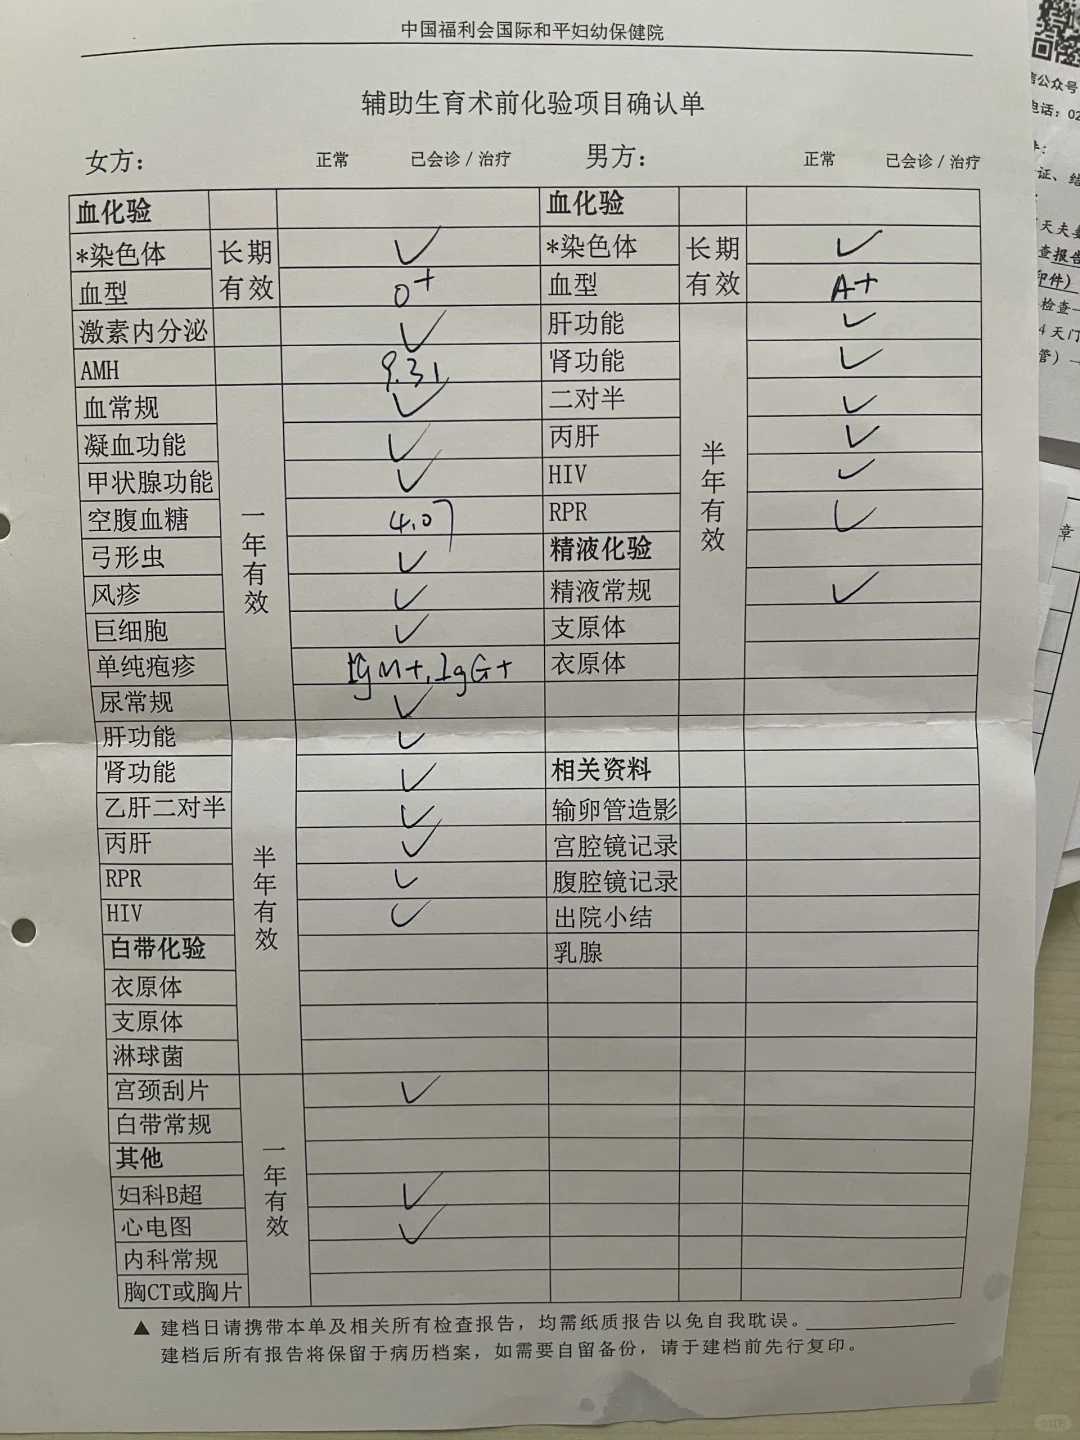 中国福利会国际和平妇幼保健院
辅助生育术前化验项目确认单
女方： 正常 已会诊/治疗 男方： 正常 已会诊/治疗
血化验 血化验
*染色体 长期有效 ✓ *染色体 长期有效 ✓
血型 O+ 血型 A+
激素内分泌 ✓ 肝功能 半年有效 ✓
AMH 9.31 肾功能 ✓
血常规 一年有效 ✓ 二对半 ✓
凝血功能 ✓ 丙肝 ✓
甲状腺功能 ✓ HIV ✓
空腹血糖 4.07 RPR ✓
弓形虫 ✓ 精液化验
风疹 ✓ 精液常规 ✓
巨细胞 ✓ 支原体
单纯疱疹 IgM+,IgG+ 衣原体
尿常规 ✓
肝功能 半年有效 ✓
肾功能 ✓ 相关资料
乙肝二对半 ✓ 输卵管造影
丙肝 ✓ 宫腔镜记录
RPR ✓ 腹腔镜记录
HIV ✓ 出院小结
白带化验 乳腺
衣原体
支原体
淋球菌
宫颈刮片 一年有效 ✓
白带常规
其他
妇科B超 ✓
心电图 ✓
内科常规
胸CT或胸片
▲ 建档日请携带本单及相关所有检查报告，均需纸质报告以免自我耽误。
建档后所有报告将保留于病历档案，如需要自留备份，请于建档前先行复印。
信公众号
电话：02
证、结
天夫妻
查报告
印件）
检查一
4天门
管）一
章